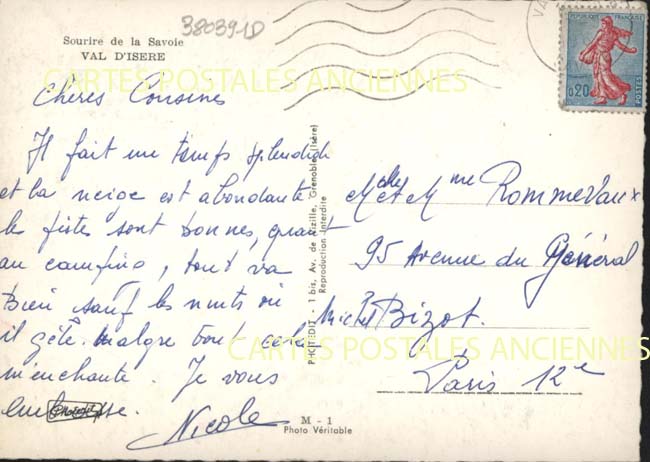 38039-1D
Sourire de la Savoie
VAL D'ISERE
REPUBLIQUE FRANÇAISE
0,20
POSTES
CARTES POSTALES ANCIENNES
Chères Cousines
Il fait un temps splendide
et la neige est abondante
les pistes sont bonnes, quant
au camping, tout va
bien sauf les nuits où
il gèle. malgré tout cela
m'enchante. Je vous
embrasse.
Nicole
PHOTEDIT
PHOTEDIT - 1 bis, Av. de Vizille, Grenoble (Isère)
Reproduction Interdite
M et Mme Rommevaux
95 Avenue du Général
Michel Bizot.
Paris 12e
CARTES POSTALES ANCIENNES
M - 1
Photo Véritable